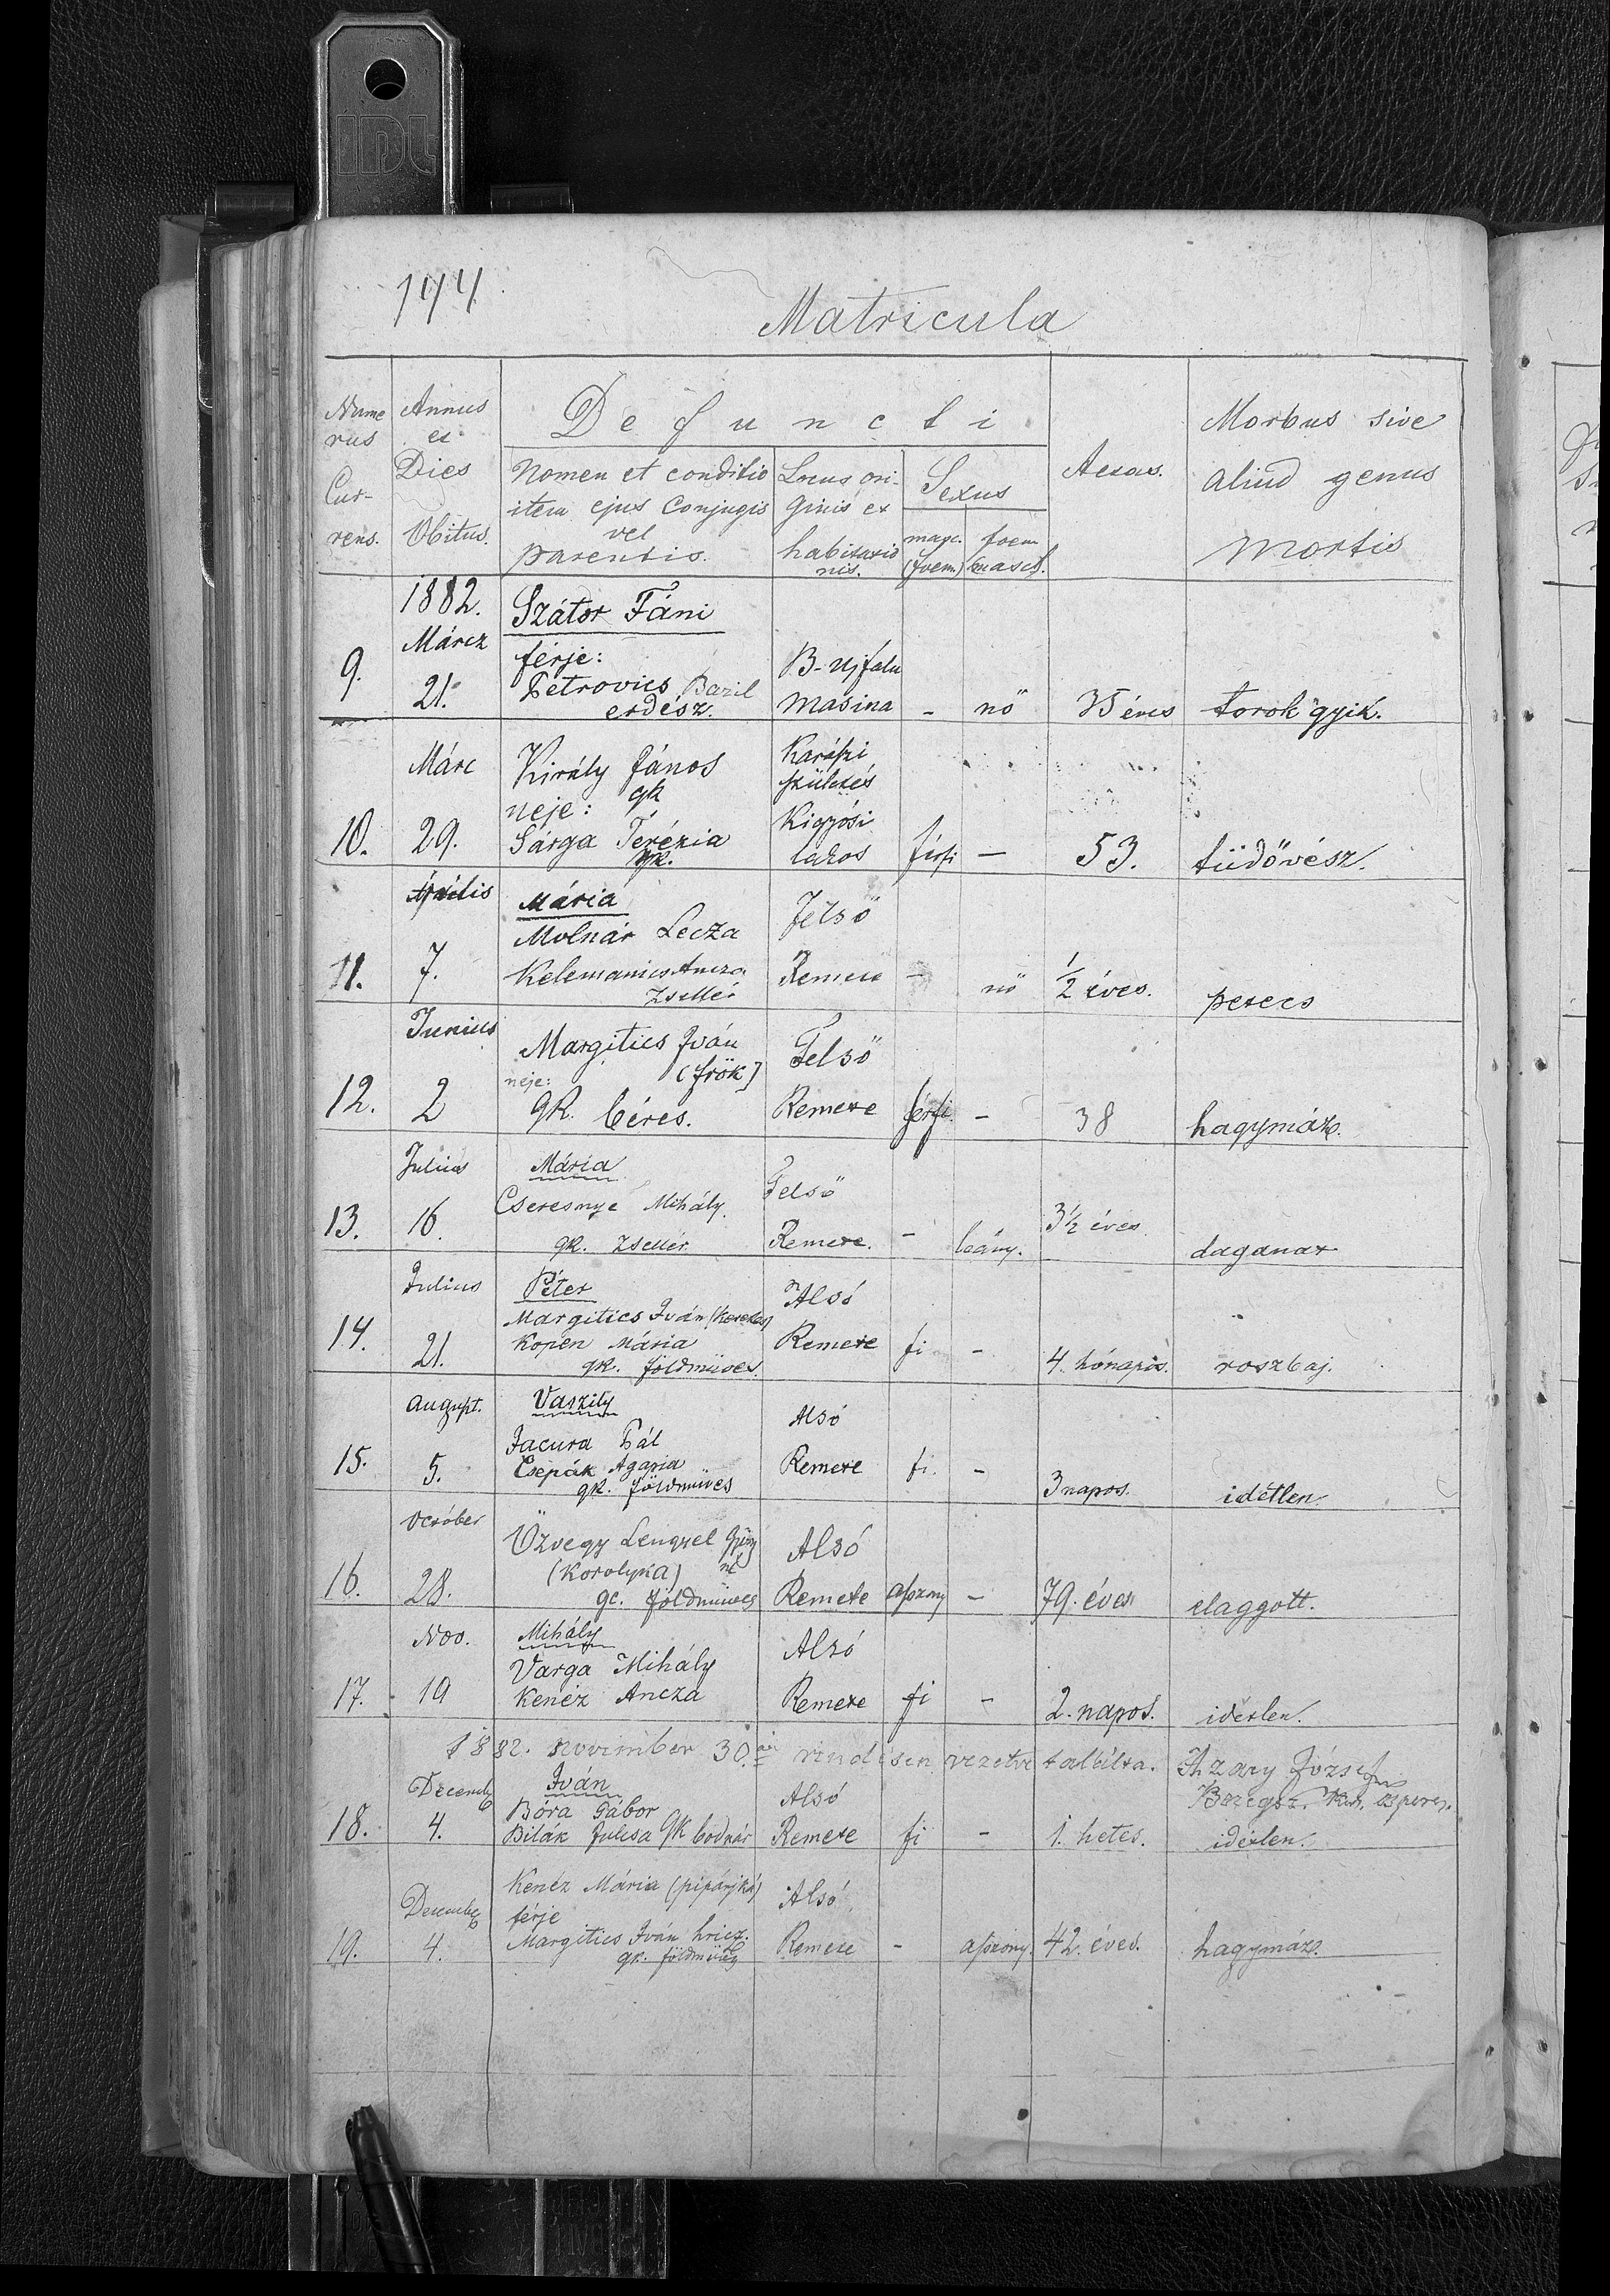 IDL
144
Matricula
Nume
rus
Cur-
rens.
Annus
et
Dies
Obitus.
Defuncti
Nomen et conditio
item ejus Conjugis
vel
parentis.
Locus ori-
ginis et
habitatio
nis.
Sexus
masc.
(foem.)
foem
masch.
Aetas.
Morbus sive
aliud genus
mortis
9.
1882.
Márcz
21.
Szátor Fáni
férje:
Petrovics Bazil
erdész.
B-Ujfalu
Masina
- nö
35 éves
torok gyik.
10.
Márc
29.
Király János
gk
neje:
Sárga Terézia
gk.
Karászi
születés
Kigyósi
lakos
férfi -
53.
tüdővész.
11.
Április
7.
Mária
Molnár Lecza
Kelemanics Ancza
Zsellér
Felső
Remete
- nö
1/2 éves.
petecs
12.
Junius
2
Margitics Iván
neje: (frök)
gk. béres.
Felső
Remete
férfi. -
38
hagymáz.
13.
Julius
16.
Mária
Cseresnye Mihály.
gk. Zsellér
Felső
Remete.
- leány.
3 1/2 éves
daganat
14.
Julius
21.
Péter
Margitics Iván (Kerekes)
Kopen Mária
gk. földmüves.
Alsó
Remete
fi -
4. hónapis.
roszbaj.
15.
August.
5.
Vaszily
Jacura Pál
Csepák Agapia
gk. földmüves
Alsó
Remete
fi. -
3 napos.
idétlen.
16.
October
28.
Özvegy Lengyel György
(Korolyka) né
gc. földmüves
Alsó
Remete
asszony -
79. éves
elaggott.
17.
Nov.
19
Mihály
Varga Mihály
Kenéz Ancza
Alsó
Remete
fi -
2. napos.
idétlen.
1882. november 30.án rendesen vezetve találtta.
József
18.
Decemb
4.
Iván
Bóra Gábor
Bilák Julcsa gk bodnár
Alsó
Remete
fi -
1. hetes.
idétlen.
19.
Decemb
4.
Kenéz Mária (pipárjká)
férje
Margitics Iván hricz.
gk. földmüves
Alsó
Remete
- asszony.
42. éves.
hagymáz.